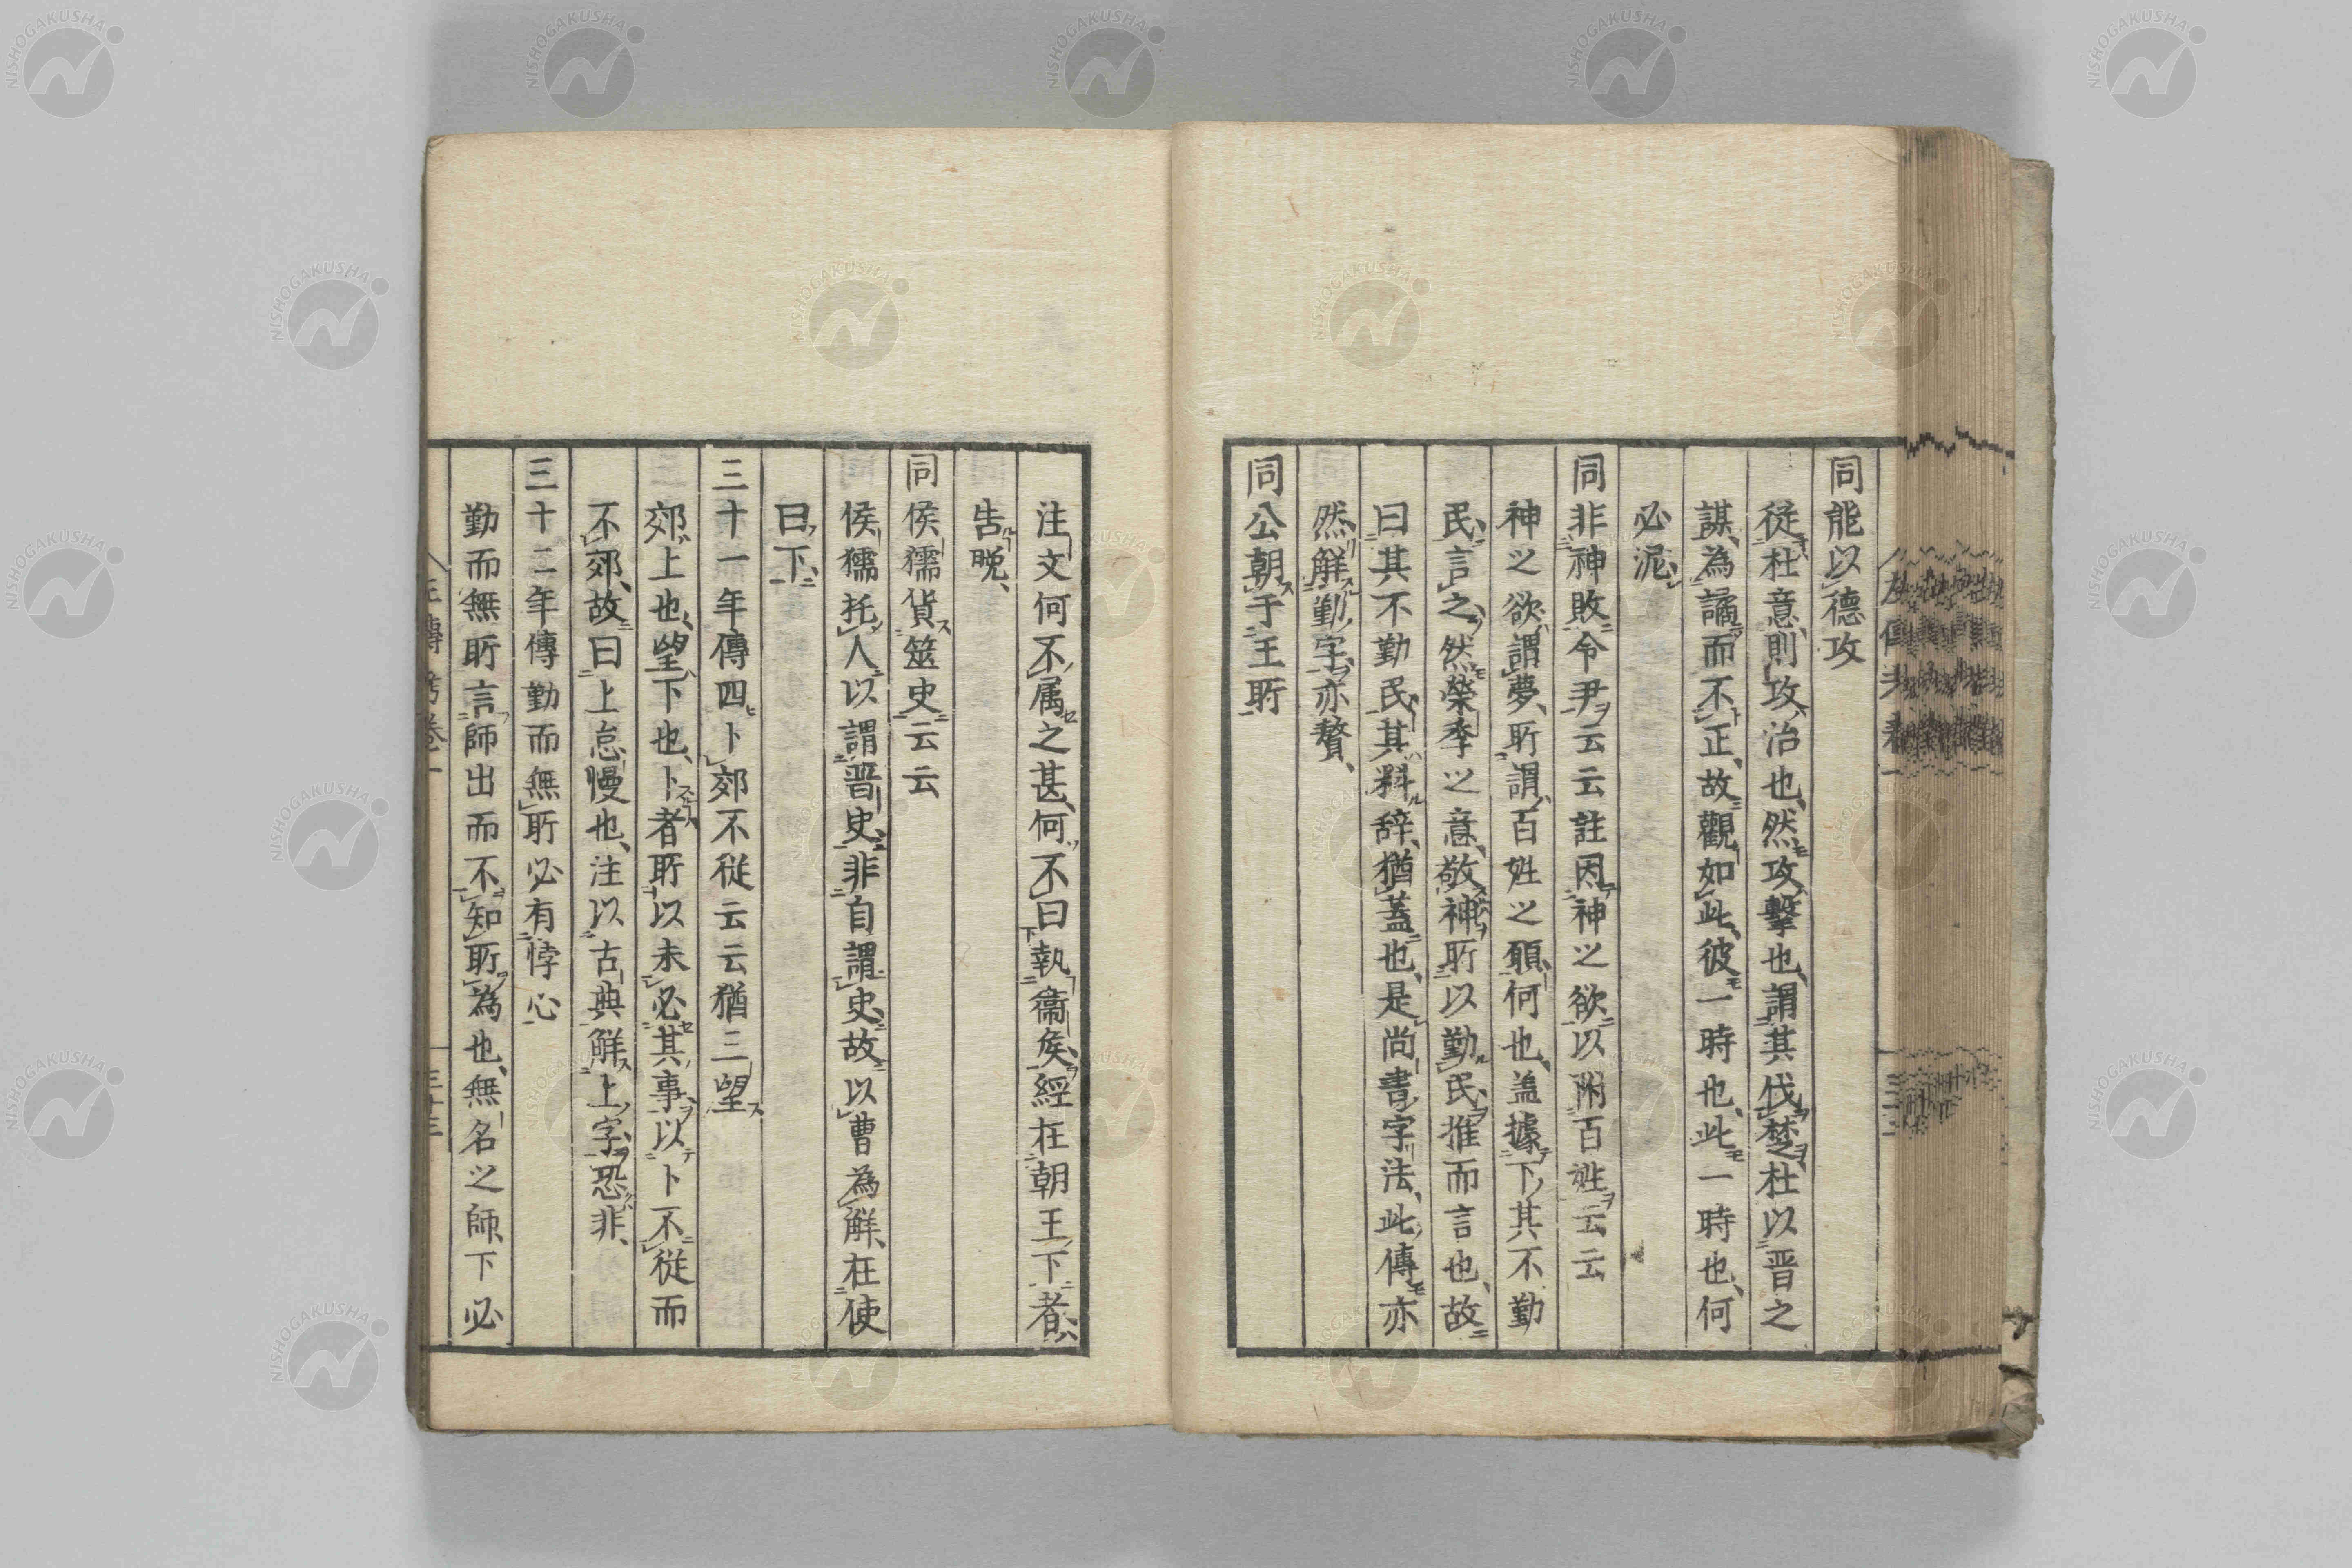 同能以德攻
從杜意則攻治也然攻擊也謂其伐楚杜以晋之
謀為譎而不正故觀如此彼一時也此一時也何
必泥
同非神敗令尹云云註因神之欲以附百姓云云
神之欲謂夢所謂百姓之願何也盖據下其不勤
民言之然榮季之意敬神所以勤民推而言也故
曰其不勤民其料辞猶蓋也是尚書字法此傳亦
然解勤字亦贅
同公朝于王所
注文何不属之甚何不曰執衞矦經在朝王下者
告晚
同侯獳貨筮史云云
侯獳托人以謂晋史非自謂史故以曹為解在使
曰下
三十一年傳四卜郊不從云云猶三望
郊上也望下也卜者所以未必其事以卜不從而
不郊故曰上怠慢也注以古典解上字恐非
三十二年傳勤而無所必有悖心
勤而無所言師出而不知所為也無名之師下必